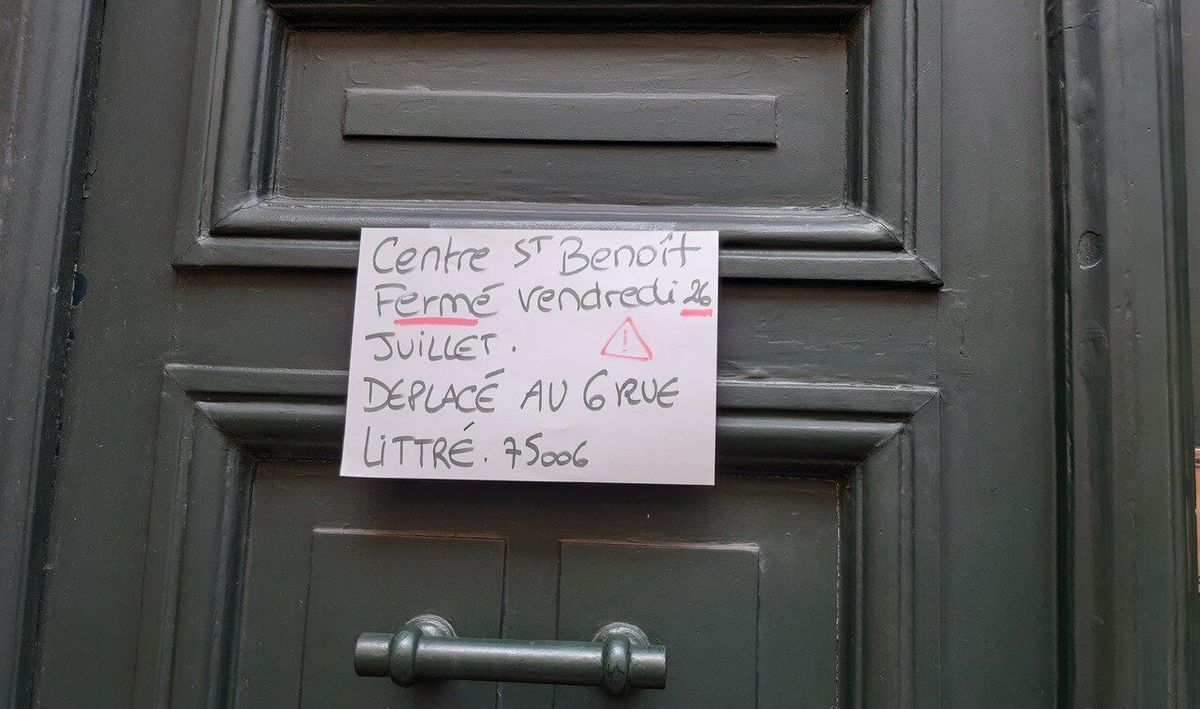 Centre St Benoît
Fermé vendredi 26
JUILLET.
DEPLACÉ AU 6 RUE
LITTRÉ. 75006